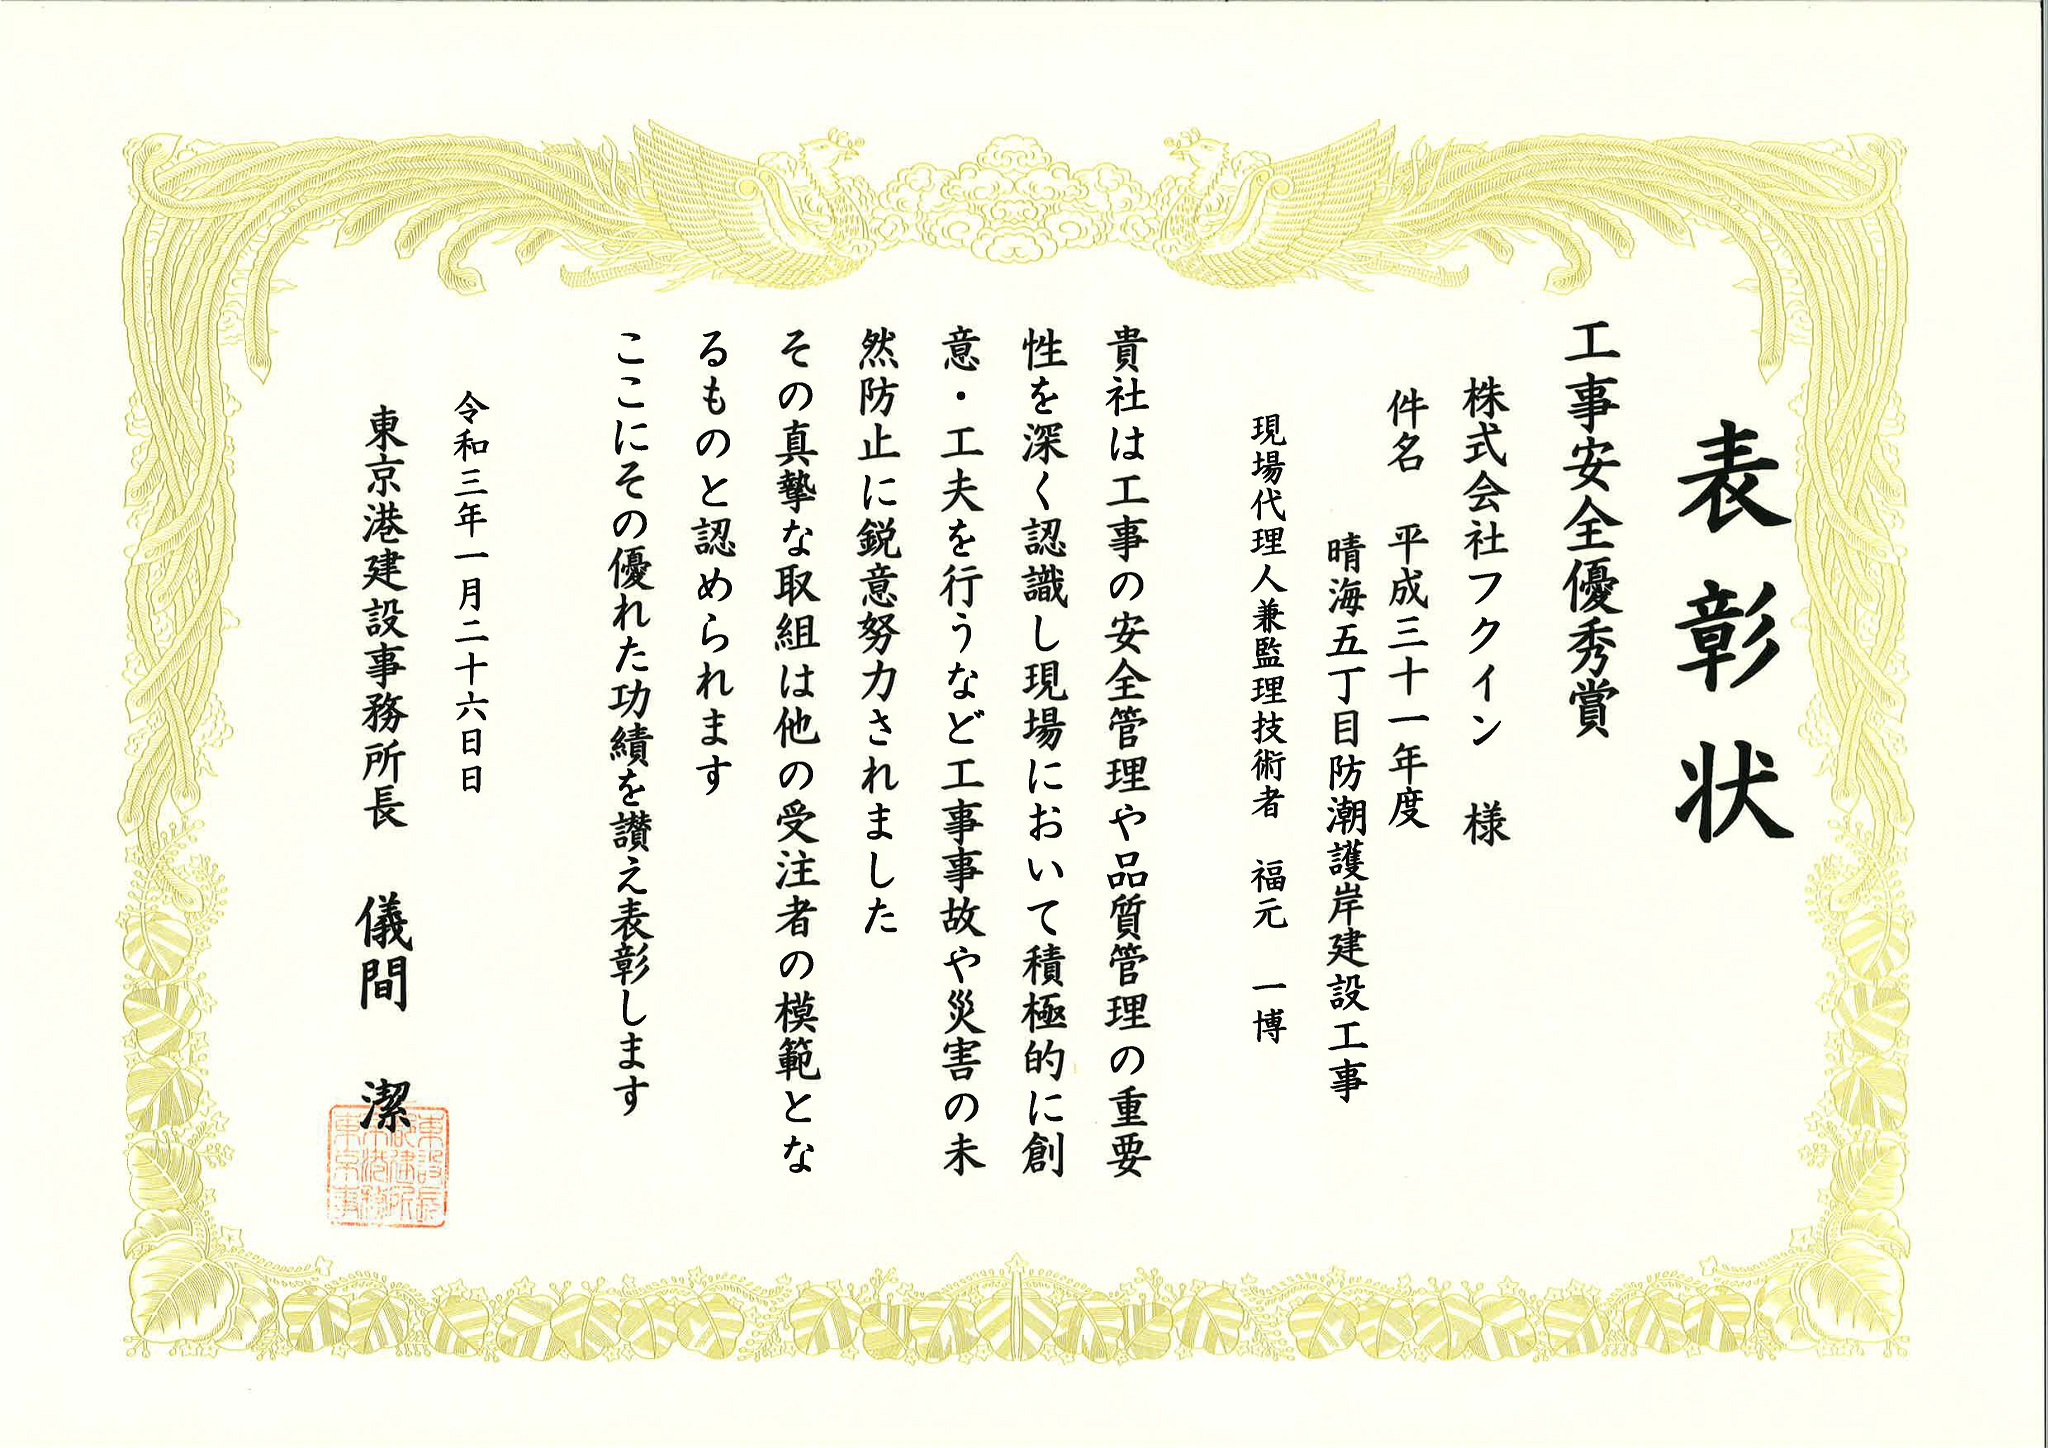 表彰状
工事安全優秀賞
株式会社フクイン 様
件名 平成三十一年度
晴海五丁目防潮護岸建設工事
現場代理人兼監理技術者 福元 一博
貴社は工事の安全管理や品質管理の重要
性を深く認識し現場において積極的に創
意・工夫を行うなど工事事故や災害の未
然防止に鋭意努力されました
その真摯な取組は他の受注者の模範とな
るものと認められます
ここにその優れた功績を讃え表彰します
令和三年一月二十六日日
東京港建設事務所長 儀間 潔